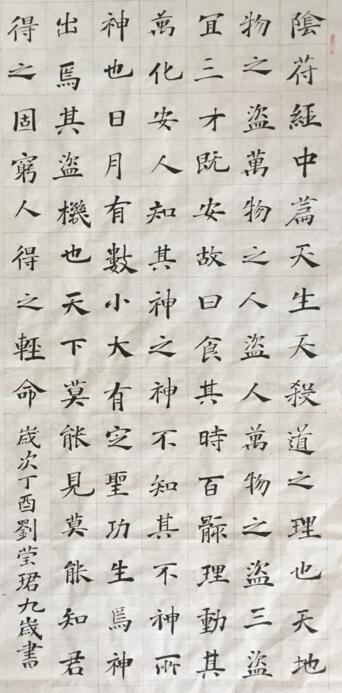 陰符經中篇天生天殺道之理也天地
物之盜萬物之人盜人萬物之盜三盜
宜三才既安故曰食其時百骸理動其
萬化安人知其神之神不知其不神所
神也日月有數小大有定聖功生焉神
出焉其盜機也天下莫能見莫能知君
得之固窮人得之輕命
歲次丁酉劉莹珺九歲書